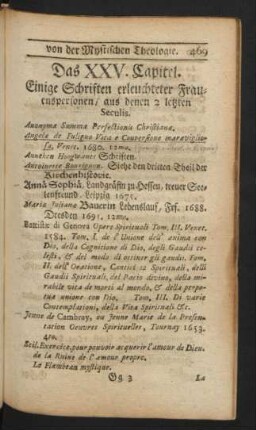 von der Mystischen Theologie. 469
Das XXV. Capitel.
Einige Schriften erleuchteter Frau-
enspersonen/ aus denen 2 letzten
Seculis.
Anonyma Summa Perfectionis Christianæ.
Angela de Fuligno Vita e Conversione maraviglio-
sa, Venet. 1680. 12mo.
Annecken Hoogwants Schriften.
Antoinette Bourignon. Siehe den dritten Theil der
Kirchenhistorie.
Anna Sophia, Landgräfin zu Hessen, treuer See-
lenfreund. Leipzig 1675.
Maria Susanna Bauerin Lebenslauf, Fcf. 1688.
Dresden 1691. 12mo.
Battista di Genova Opere Spirituali Tom. III. Venet.
1584. Tom. I. de l Unione dell' anima con
Dio, della Cognitione di Dio, degli Gaudii ce-
lesti, & del modo di acquistar gli gaudii. Tom.
II. dell' Oratione, Conviti ca Spirituali, delli
Gaudii Spirituali, del Patto divino, della mi-
rabile vita de morti al mondo, & della perpe-
tua unione con Dio. Tom. III. Di varie
Contemplationi, della Vita Spirituali &c.
Jenne de Cambray, ou Jenne Marie de la Presen-
tation Oeuvres Spirituelles, Tournay 1653.
4to.
Exercice pour pouvoir acquerir l'amour de Dieu.
de la Ruine de l'amour propre.
Le Flambeau mystique.
Gg 3 La